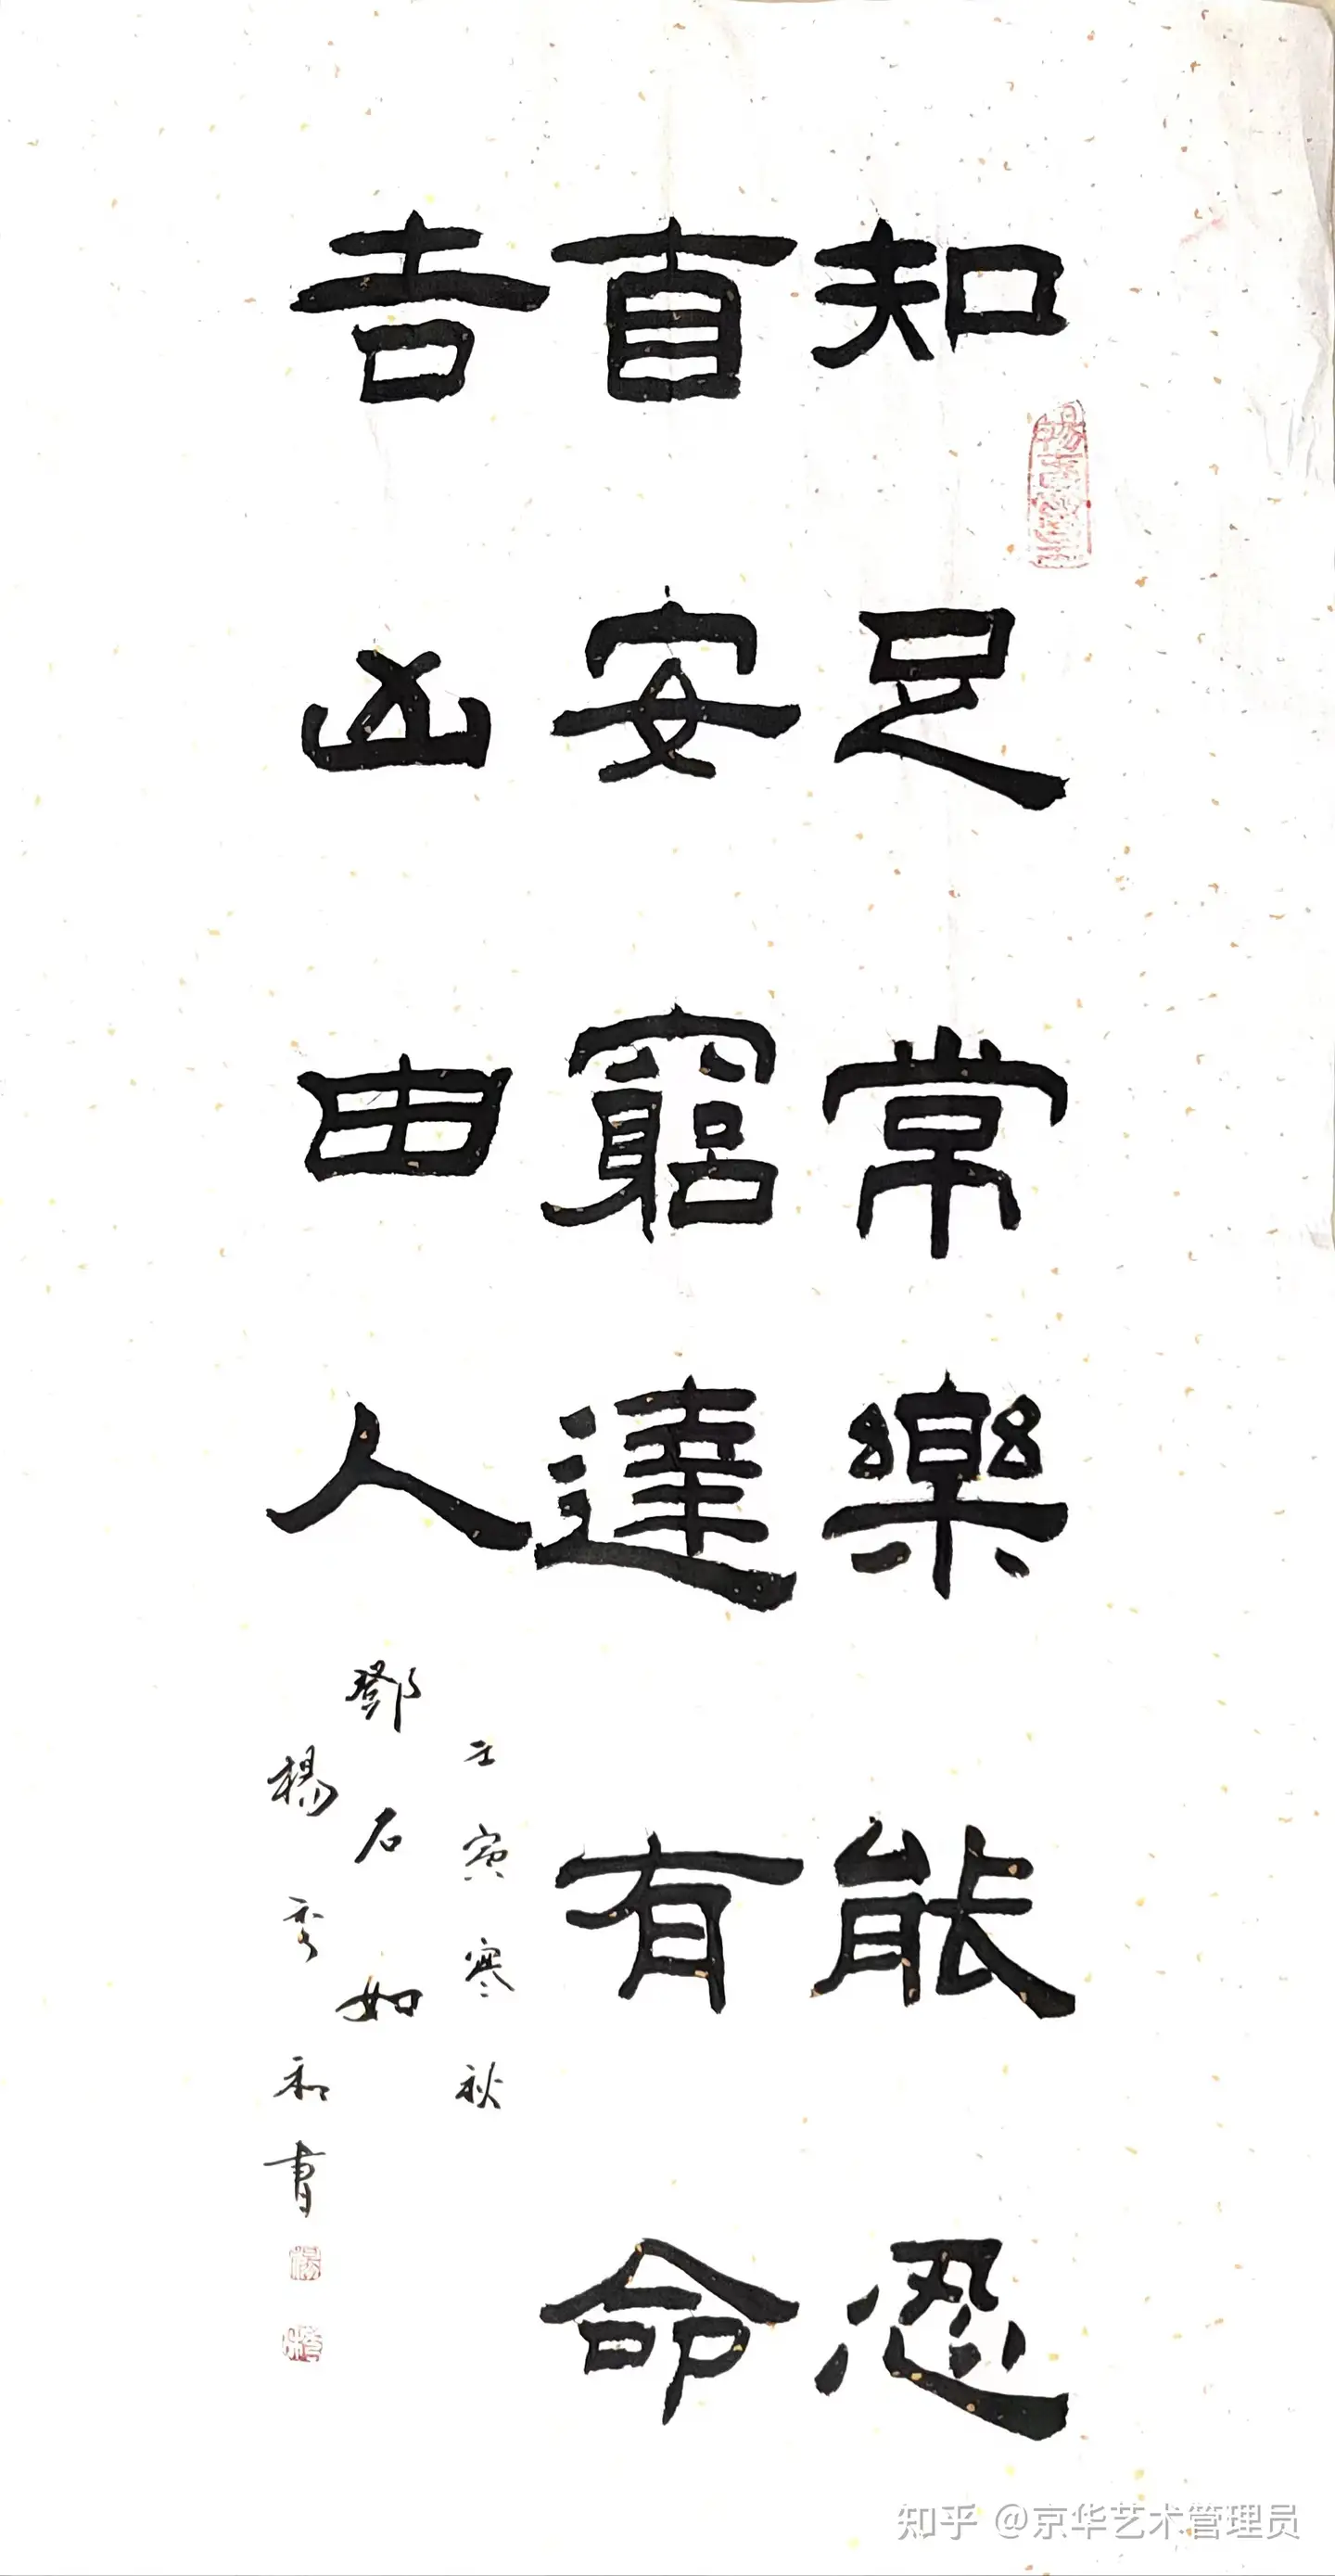 知足常樂能忍
直安窮達有命
吉凶由人
壬寅寒秋
鄧石如
楊秀和書
知乎 @京华艺术管理员